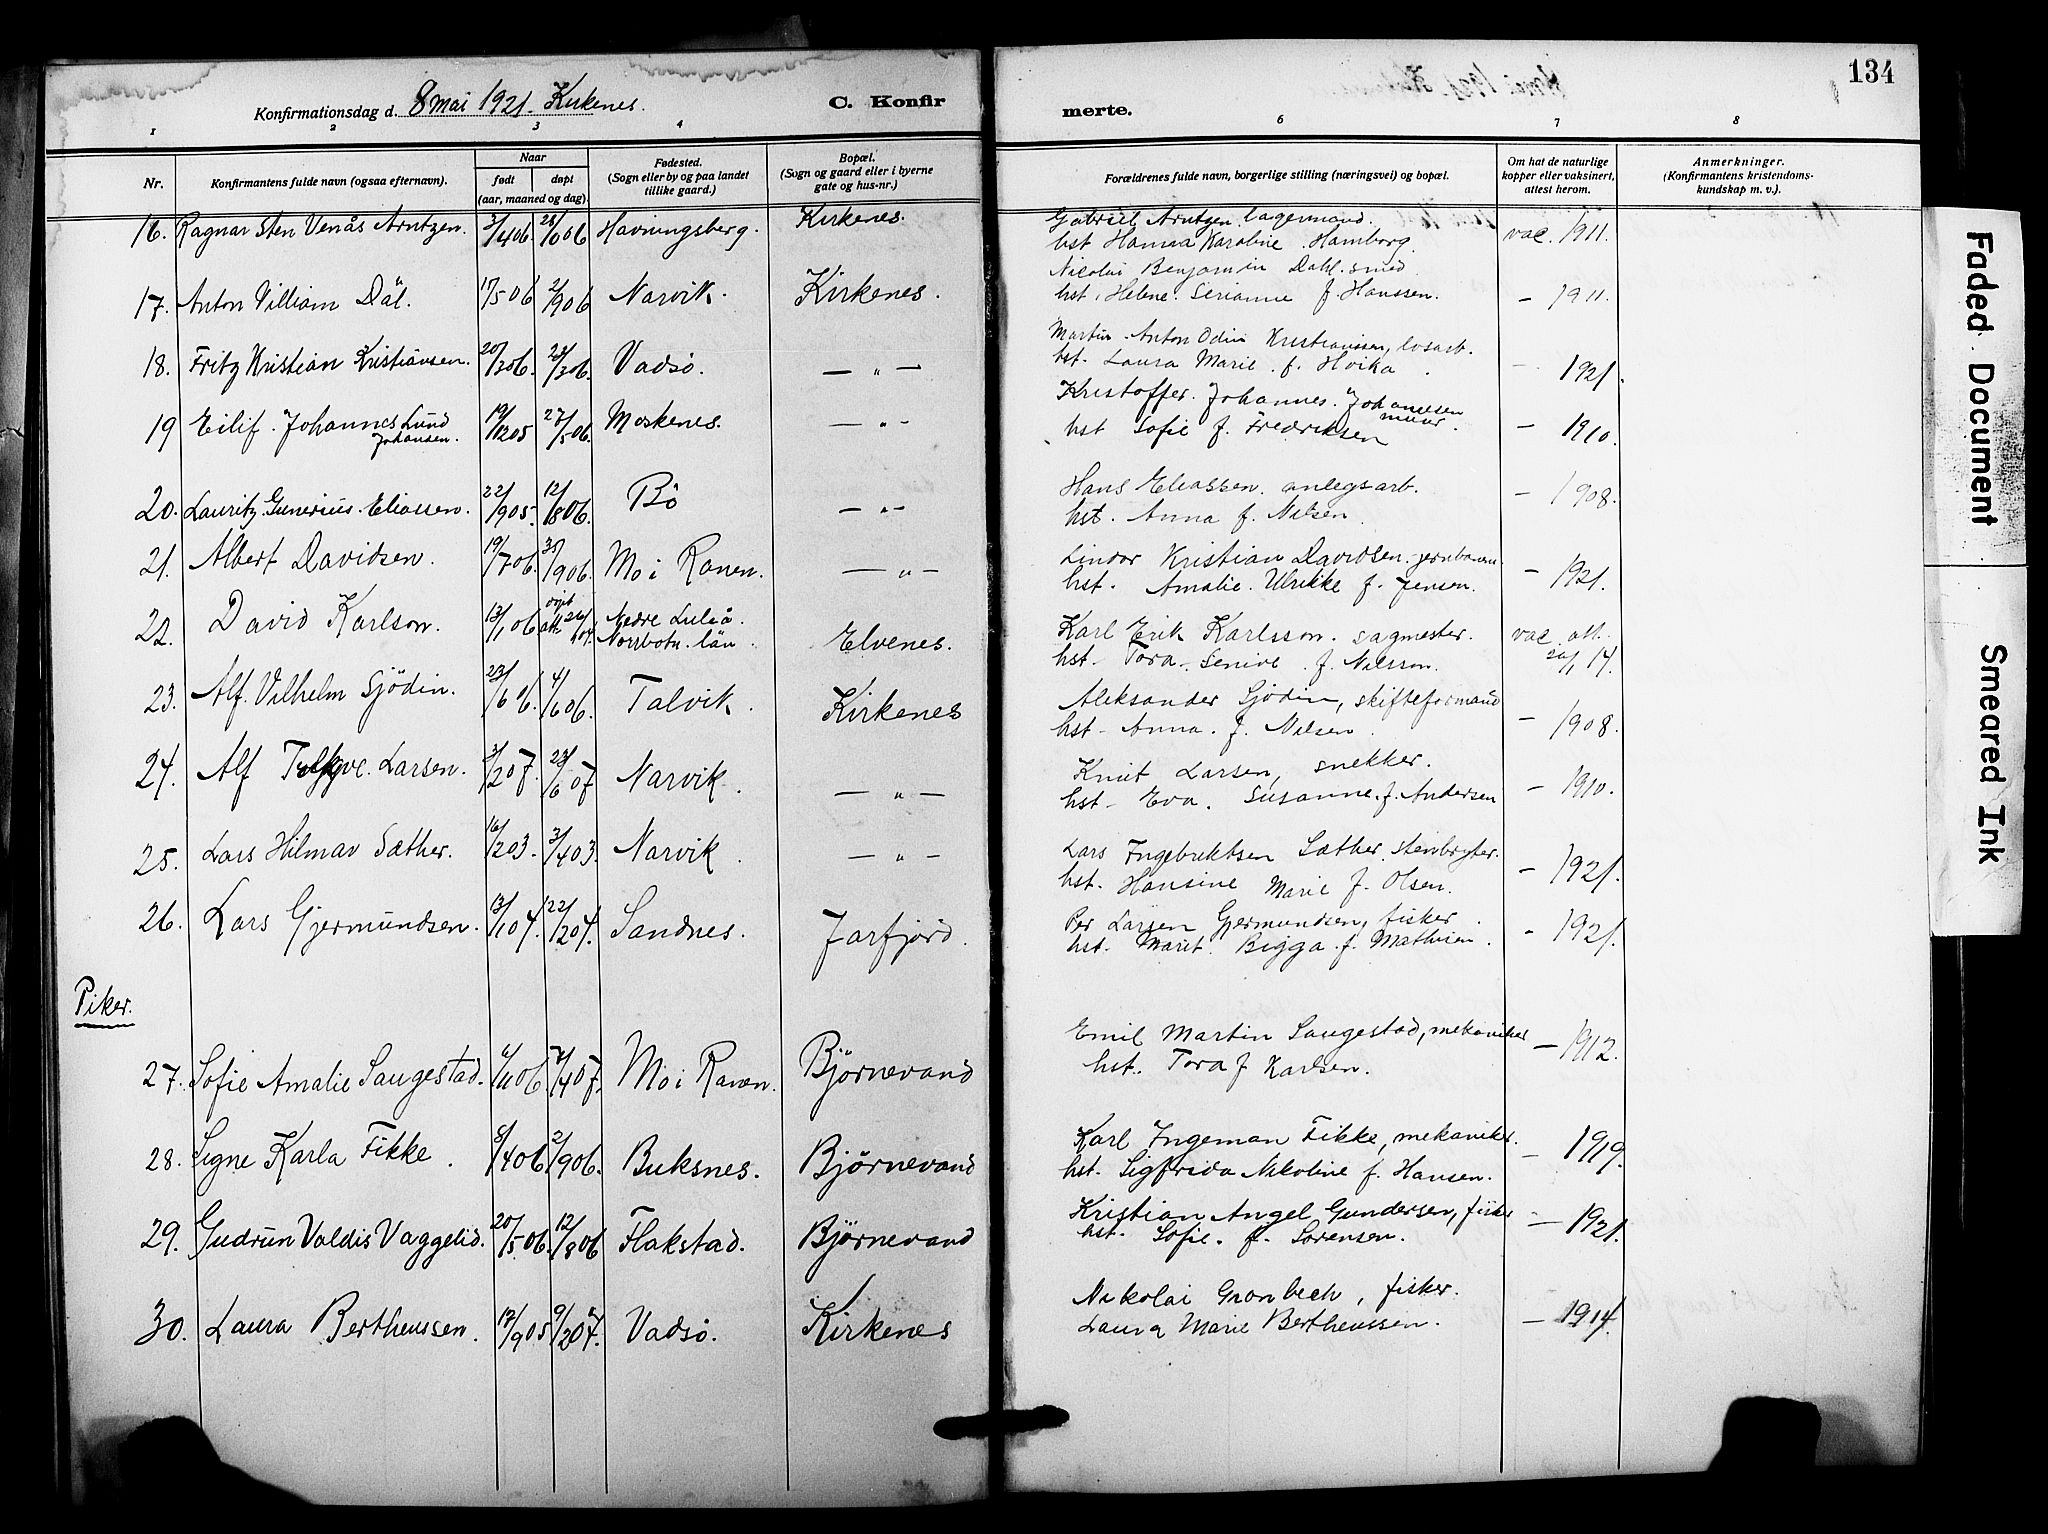 134
Konfirmationsdag d. 8 mai 1921. Kirkenes.
C. Konfir
merte.
1 2 3 4 6 7 8
Nr.
Konfirmantens fulde navn (ogsaa efternavn).
Naar
født
døpt
(aar, maaned og dag)
Fødested.
(Sogn eller by og paa landet
tillike gaard.)
Bopæl.
(Sogn og gaard eller i byerne
gate og hus-nr.)
Forældrenes fulde navn, borgerlige stilling (næringsvei) og bopæl.
Om hat de naturlige
kopper eller vaksinert,
attest herom.
Anmerkninger.
(Konfirmantens kristendoms-
kundskap m. v.).
16. Ragnar Sten Venås Arntzen. 3/4 06. 28/10 06 Havningsberg. Kirkenes. Gabriel Arntzen, lagermand. vac. 1911.
hst Hanna Karoline. Hamborg.
17. Anton Villiam Dal. 17/5 06 2/9 06 Narvik. Kirkenes. Nicolai Benjamin Dahl. smed
hst. Helene. Serianne f. Hanssen. — 1911.
18. Fritz Kristian Kristiansen. 20/3 06. 28/3 06. Vadsö. — " — Martin Anton Odin Kristianssen, løsarb.
hst. Laura Marie. f. Hvika. — 1921.
19 Eilif Johannes Lund 19/12 05 27/5 06. Moskenes. — " — Kristoffer. Johannes. Johannesen
Johansen. murer.
hst Sofie f. Fredriksen — 1910.
20. Lauritz Gunerius Eliassen. 22/9 05. 12/8 06. Bö — " — Hans Eliassen. anlegsarb. — 1908.
hst. Anna f. Nilsen
21. Albert Davidsen. 19/7 06. 30/9 06. Mo i Ranen. — " — Lindor Kristian Davidsen. jernbanem.
hst. Amalie. Ulrikke f. Jensen. — 1921.
22. David Karlson. 13/1 06 döpt att. 26/1 04. Nedre Luleå. Elvenes. Karl Erik Karlsson. sagmester. vac att.
Norrbotn. län. hst. Tora f. Nilsson. 20/1 14.
23. Alf. Vilhelm Sjödin. 23/6 06. 4/6 06. Talvik. Kirkenes Aleksander Sjödin, skifteformand
hst. Anna. f. Nilsen. — 1908.
24. Alf Larsen. 3/2 07. 23/6 07 Narvik. — " — Knut Larsen, snekker.
hst. Eva. Susanne. f. Andersen — 1910.
25. Lars Hilmar Sæther. 16/2 03. 3/4 03. Narvik — " — Lars Ingebriktsen Sæther, stenbryter.
hst. Hansine Marie f. Olsen. — 1921.
26. Lars Gjermundsen. 13/1 04. 22/2 04. Sandnes. Jarfjord. Per Larsen Gjermundsen, fisker. - 1921.
hst. Marit. Bigga. f. Mathisen.
Piker.
27. Sofie Amalie Saugestad. 6/11 06. 7/4 07. Mo i Ranen. Björnevand Emil Martin Saugestad, mekaniker — 1912.
hst. Tora f Karlsen.
28. Signe Karla Fikke. 8/4 06 2/9 06. Buksnes. Björnevand Karl Ingeman Fikke, mekanikr.
hst. Sigfrida Nikoline f. Hansen. — 1919.
29. Gudrun Valdis Vaggelid. 20/5 06. 12/8 06 Flakstad. Björnevand Kristian Angel Gundersen, fisker
hst. Sofie. f. Sörensen. — 1921.
30. Laura Bertheussen. 17/9 05 9/2 07. Vadsö. Kirkenes Nikolai Grönbech, fisker.
Laura Marie Bertheussen. — 1914.
Faded Document
Smeared Ink